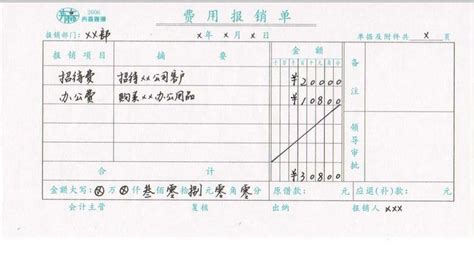 2006
费用报销单
报销部门：XX部 x年x月x日 单据及附件共x页
报销项目 摘要 金额 备注
十万千百十元角分
招待费 招待xx公司客户 ¥20000
办公费 购买xx办公用品 ¥10800
领导审批
合计 ¥30800
金额大写：⊗万⊗仟叁佰零拾捌元零角零分 原借款： 元 应退(补)款： 元
会计主管 复核 出纳 报销人 xxx